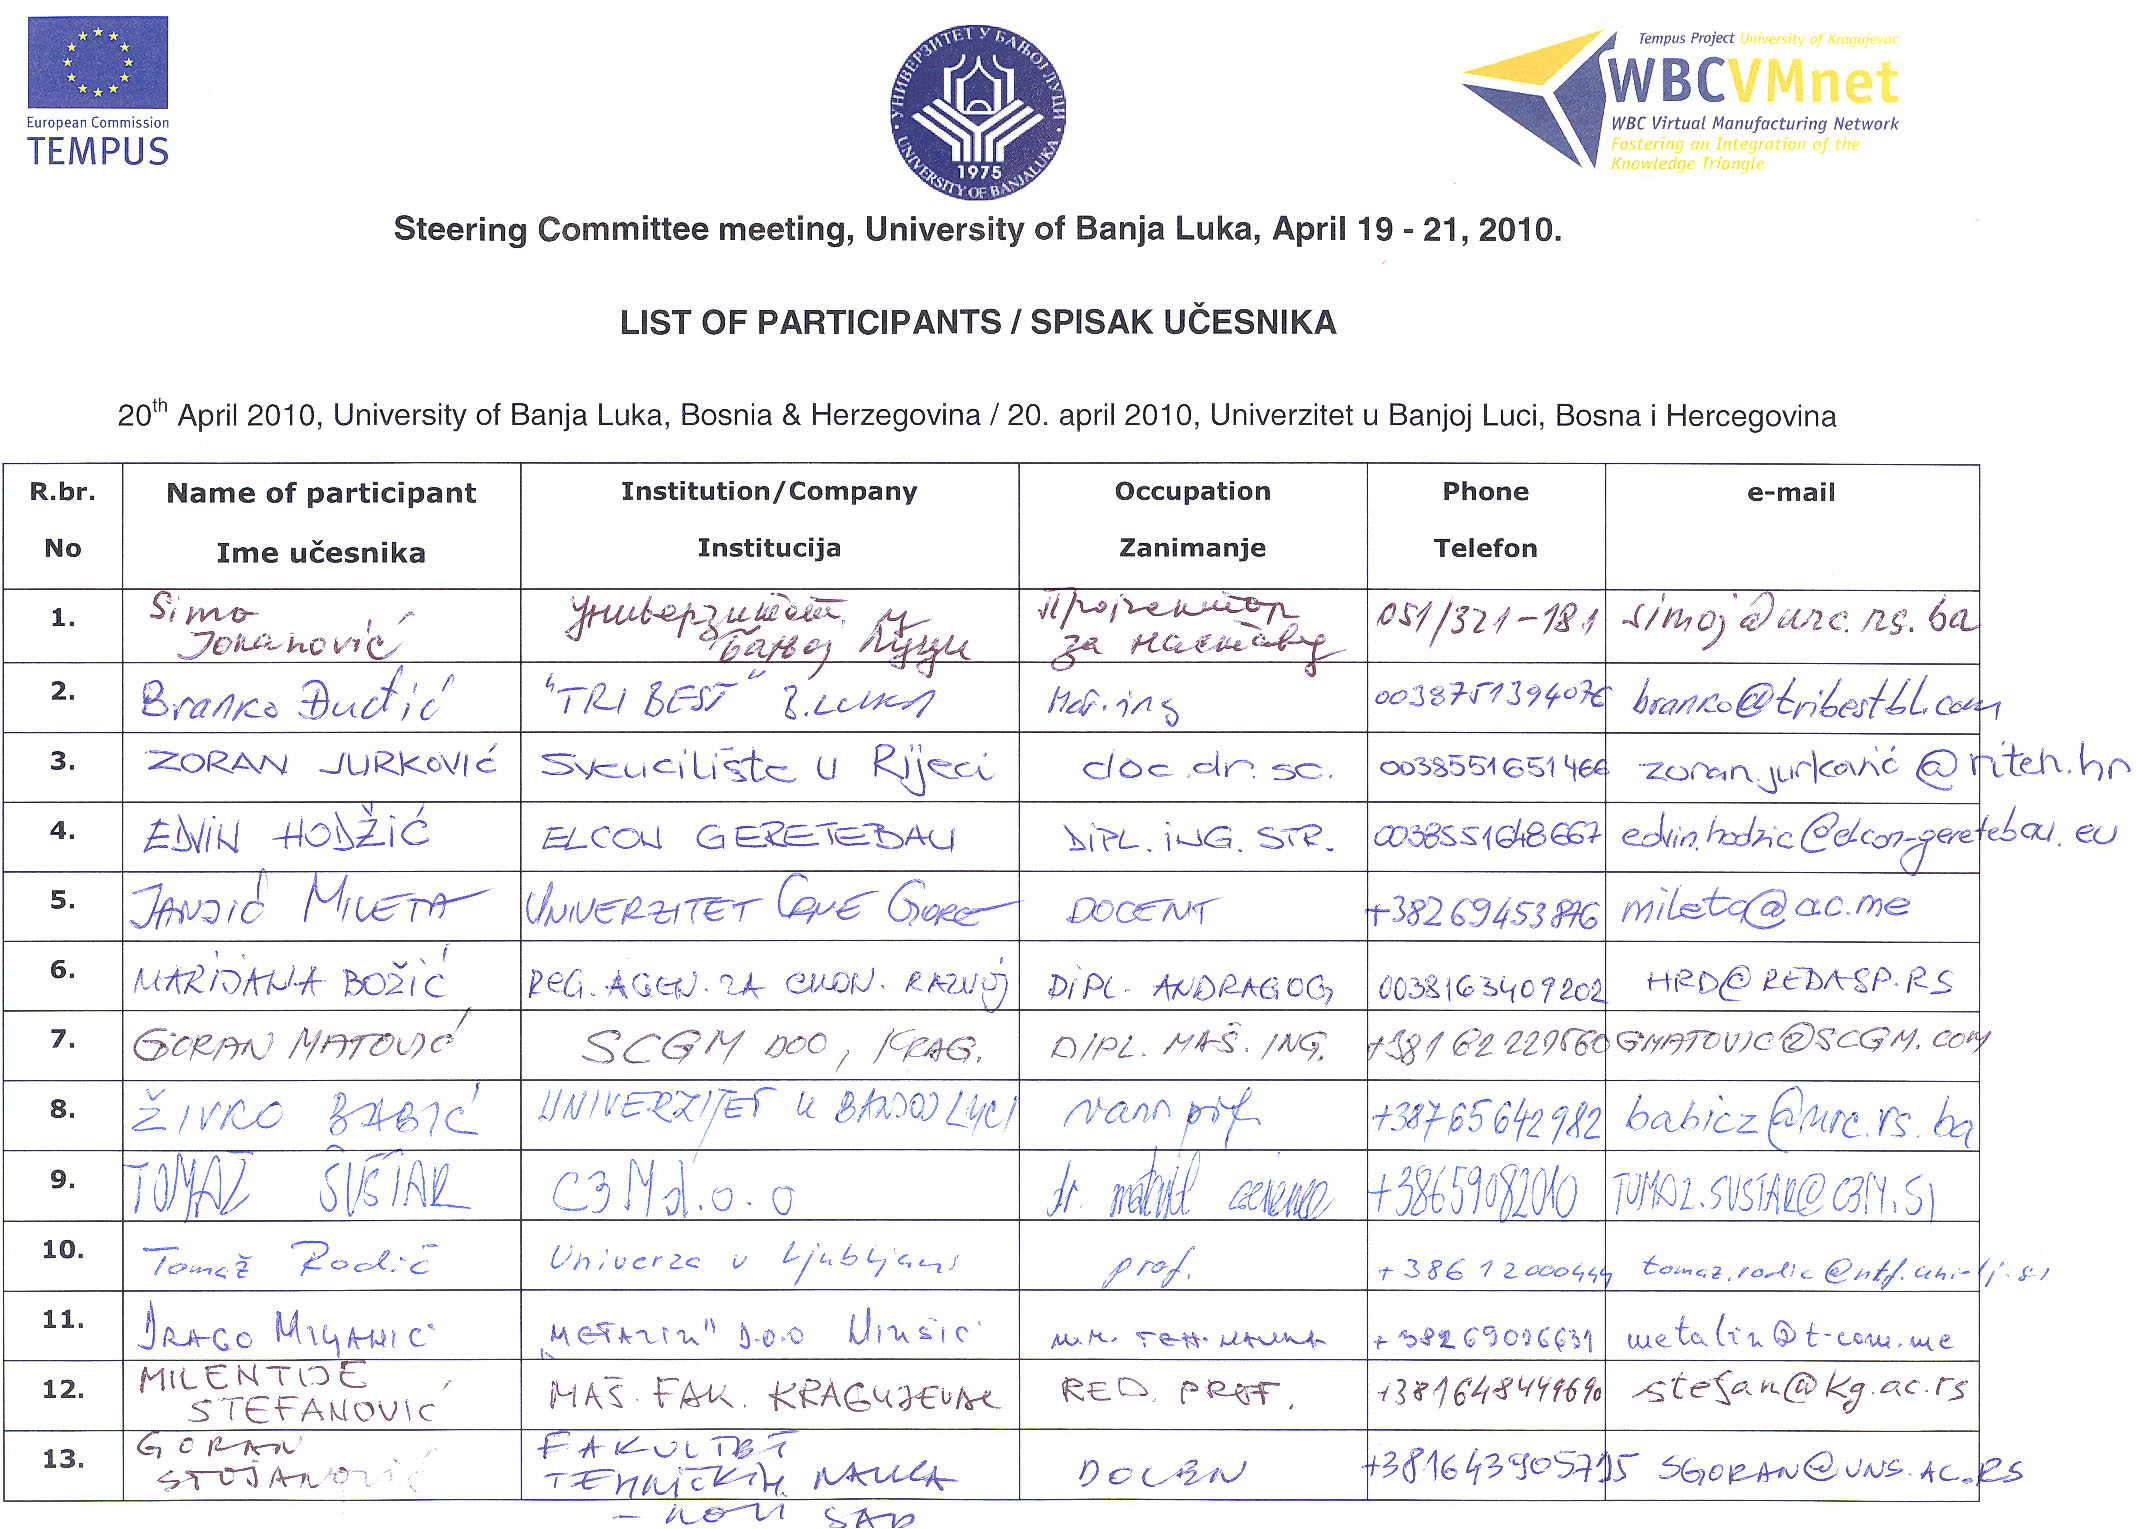 European Commission
TEMPUS
УНИВЕРЗИТЕТ У БАЊОЈ ЛУЦИ
UNIVERSITY OF BANJALUKA
1975
Tempus Project University of Kragujevac
WBCVMnet
WBC Virtual Manufacturing Network
Fostering an Integration of the
Knowledge Triangle
Steering Committee meeting, University of Banja Luka, April 19 - 21, 2010.
LIST OF PARTICIPANTS / SPISAK UČESNIKA
20th April 2010, University of Banja Luka, Bosnia & Herzegovina / 20. april 2010, Univerzitet u Banjoj Luci, Bosna i Hercegovina
R.br. Name of participant Institution/Company Occupation Phone e-mail
No Ime učesnika Institucija Zanimanje Telefon
1. Simo Универзитет у Проректор 051/321-181 simoj@urc.rs.ba
Jokanović Бањој Луци за наставу
2. Branko Đudić "TRI BEST" B.LUKA Maš.ing 0038751394076 branko@tribestbl.com
3. ZORAN JURKOVIĆ Sveučilište u Rijeci doc.dr.sc. 0038551651466 zoran.jurković@riteh.hr
4. EDVIN HODŽIĆ ELCON GERETEBAU DIPL. ING. STR. 0038551648667 edvin.hodzic@elcon-geretebau.eu
5. JANJIĆ MILETA UNIVERZITET CRNE GORE DOCENT +38269453876 mileta@ac.me
6. MARIJANA BOŽIĆ REG. AGEN. ZA EKON. RAZVOJ DIPL. ANDRAGOG 0038163409202 HRD@REDASP.RS
7. GORAN MATOVIĆ SCGM DOO, KRAG. DIPL. MAŠ. ING. +38162229560 GMATOVIC@SCGM.COM
8. ŽIVKO BABIĆ UNIVERZITET U BANJOJ LUCI vanr prof +38765642982 babicz@urc.rs.ba
9. TOMAŽ ŠUŠTAR C3M d.o.o dr. +38659082010 TOMAZ.SUSTAR@C3M.SI
10. Tomaž Rodič Univerza v Ljubljani prof. +38612000444 tomaz.rodic@ntf.uni-lj.si
11. DRAGO MIJANIĆ "METALIN" D.O.O Nikšić +38269026631 metalin@t-com.me
12. MILENTIJE MAŠ. FAK. KRAGUJEVAC RED. PROF. +381648449690 stefan@kg.ac.rs
STEFANOVIĆ
13. GORAN FAKULTET DOCEN +3816439057 SGORAN@UNS.AC.RS
STOJANOVIĆ TEHNIČKIH NAUKA
- NOVI SAD